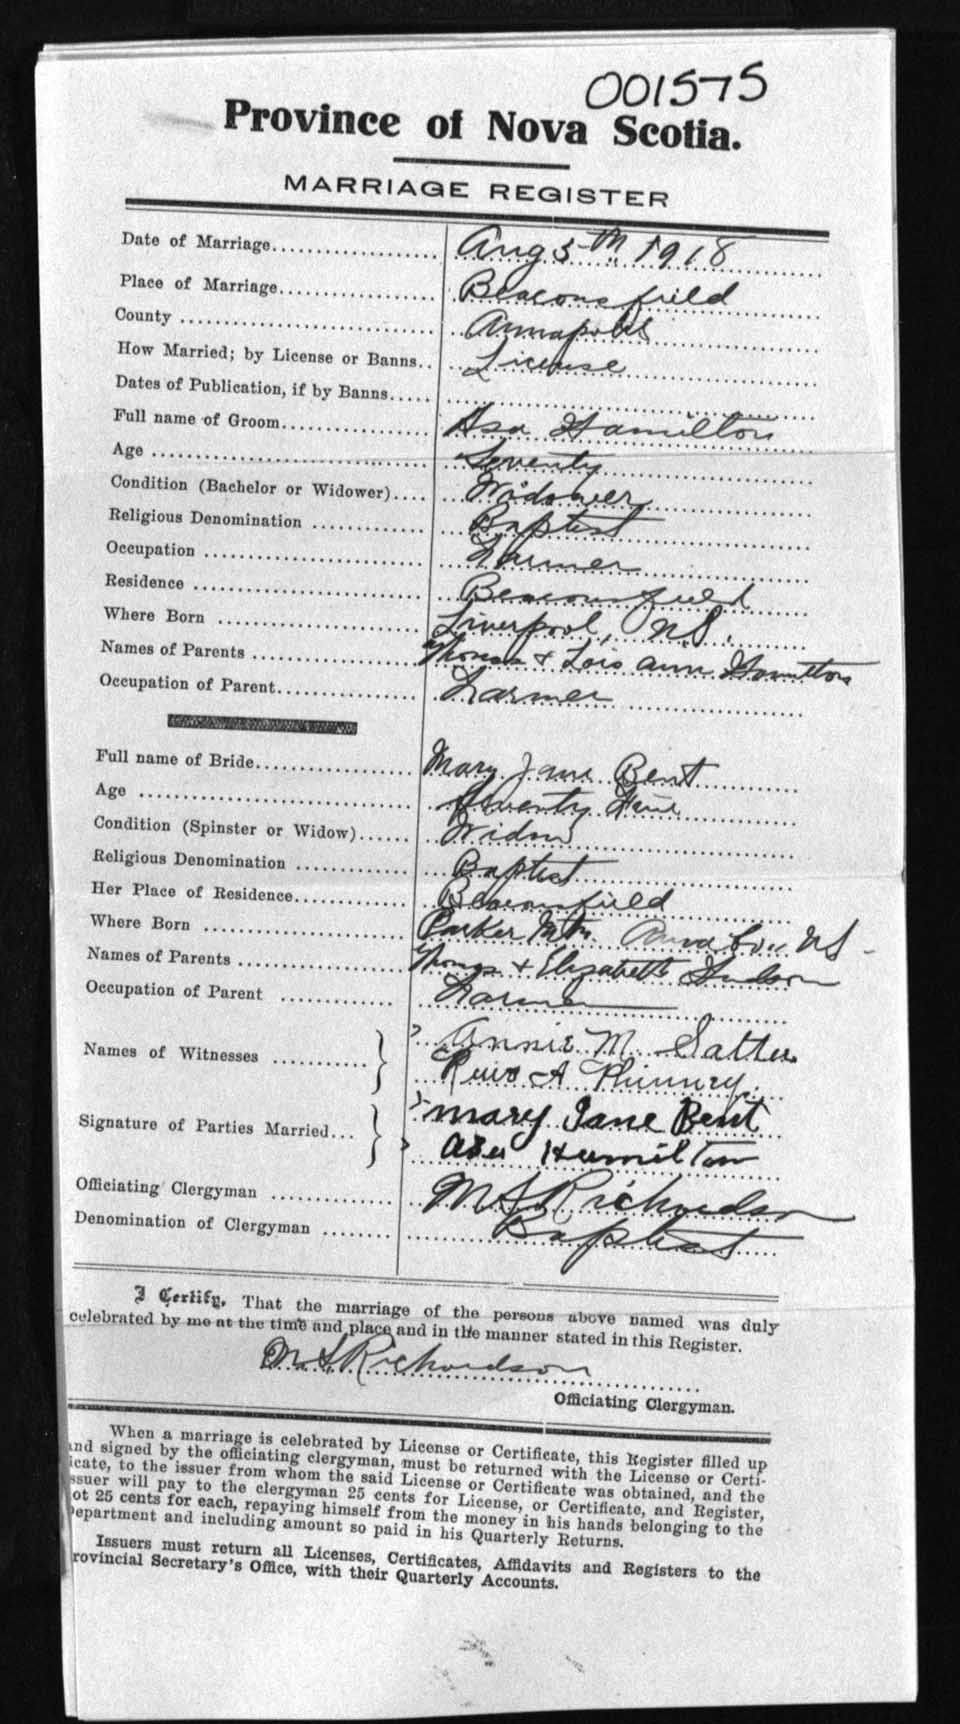 001575
Province of Nova Scotia.
MARRIAGE REGISTER
Date of Marriage Aug 5th 1918
Place of Marriage Beaconsfield
County Annapolis
How Married; by License or Banns License
Dates of Publication, if by Banns
Full name of Groom Asa Hamilton
Age Seventy
Condition (Bachelor or Widower) Widower
Religious Denomination Baptist
Occupation Farmer
Residence Beaconsfield
Where Born Liverpool, N.S.
Names of Parents Thomas + Lois Ann Hamilton
Occupation of Parent Farmer
Full name of Bride Mary Jane Bent
Age Seventy
Condition (Spinster or Widow) Widow
Religious Denomination Baptist
Her Place of Residence Beaconsfield
Where Born Parker Mtn. Anna Co. NS
Names of Parents Thomas + Elizabeth Hudson
Occupation of Parent Farmer
Names of Witnesses Annie M.
A Phinney
Signature of Parties Married Mary Jane Bent
Asa Hamilton
Officiating Clergyman M S Richardson
Denomination of Clergyman Baptist
I Certify, That the marriage of the persons above named was duly
celebrated by me at the time and place and in the manner stated in this Register.
M S Richardson
Officiating Clergyman.
When a marriage is celebrated by License or Certificate, this Register filled up
and signed by the officiating clergyman, must be returned with the License or Certi-
icate, to the issuer from whom the said License or Certificate was obtained, and the
ssuer will pay to the clergyman 25 cents for License, or Certificate, and Register,
ot 25 cents for each, repaying himself from the money in his hands belonging to the
epartment and including amount so paid in his Quarterly Returns.
Issuers must return all Licenses, Certificates, Affidavits and Registers to the
rovincial Secretary's Office, with their Quarterly Accounts.